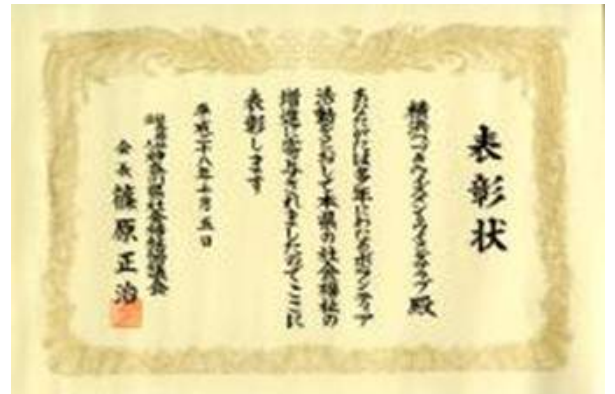 表彰状
横浜つづきワイズメンズクラブ 殿
あなたがたは多年にわたるボランティア
活動をとおして本県の社会福祉の
増進に寄与されましたのでここに
表彰します
平成二十八年十月五日
神奈川県社会福祉協議会
会長 篠原正治